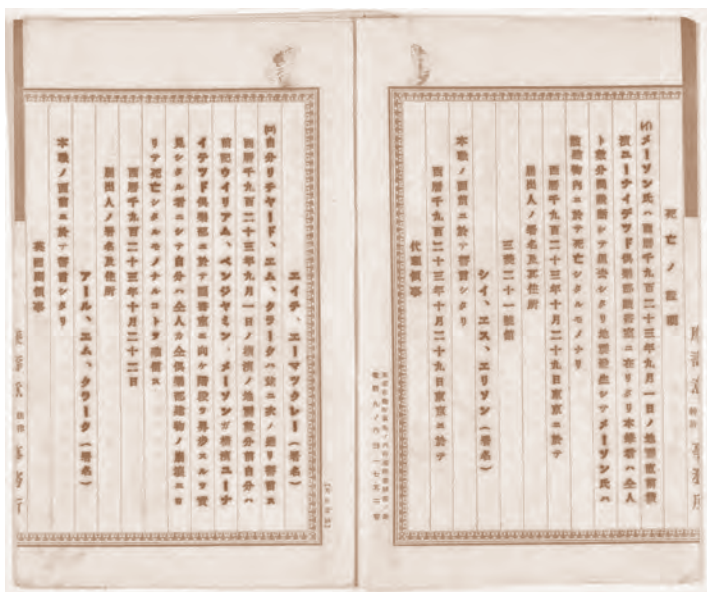 死亡ノ證明
(イ)メーソン氏ハ西曆千九百二十三年九月一日ノ地震直前橫
濱ユーナイテツド俱樂部圖書室ニ在リタリ本條君ハ仝人
ト數分間談話シテ退去シタリ地震發生シテメーソン氏ハ
該建物內ニ於テ死亡シタルモノナリ
西曆千九百二十三年十月二十九日東京ニ於テ
人ノ署名及住所
三菱二十一號館
シイ、エス、エリソン(署名)
本職ノ面前ニ於テ誓言シタリ
西曆千九百二十三年十月二十九日東京ニ於テ
代理領事
エイチ、エーマツクレー(署名)
(ロ)自分リチヤード、エム、クラークハ玆ニ次ノ通リ誓言ス
西曆千九百二十三年九月一日ノ橫濱ノ地震數分前自分ハ
前記ウイリアム、ベンジヤミン、メーソンガ橫濱ユーナ
イテツド俱樂部ニ於テ圖書室ニ向ケ階段ヲ昇步スルヲ實
見シタル者ニシテ自分ハ仝人カ仝俱樂部建物ノ崩壞ニ因
リテ死亡シタルモノナルコトヲ確信ス
西曆千九百二十三年十月二十二日
人ノ署名及住所
アール、エム、クラーク(署名)
本職ノ面前ニ於テ誓言シタリ
英國副領事
事務所